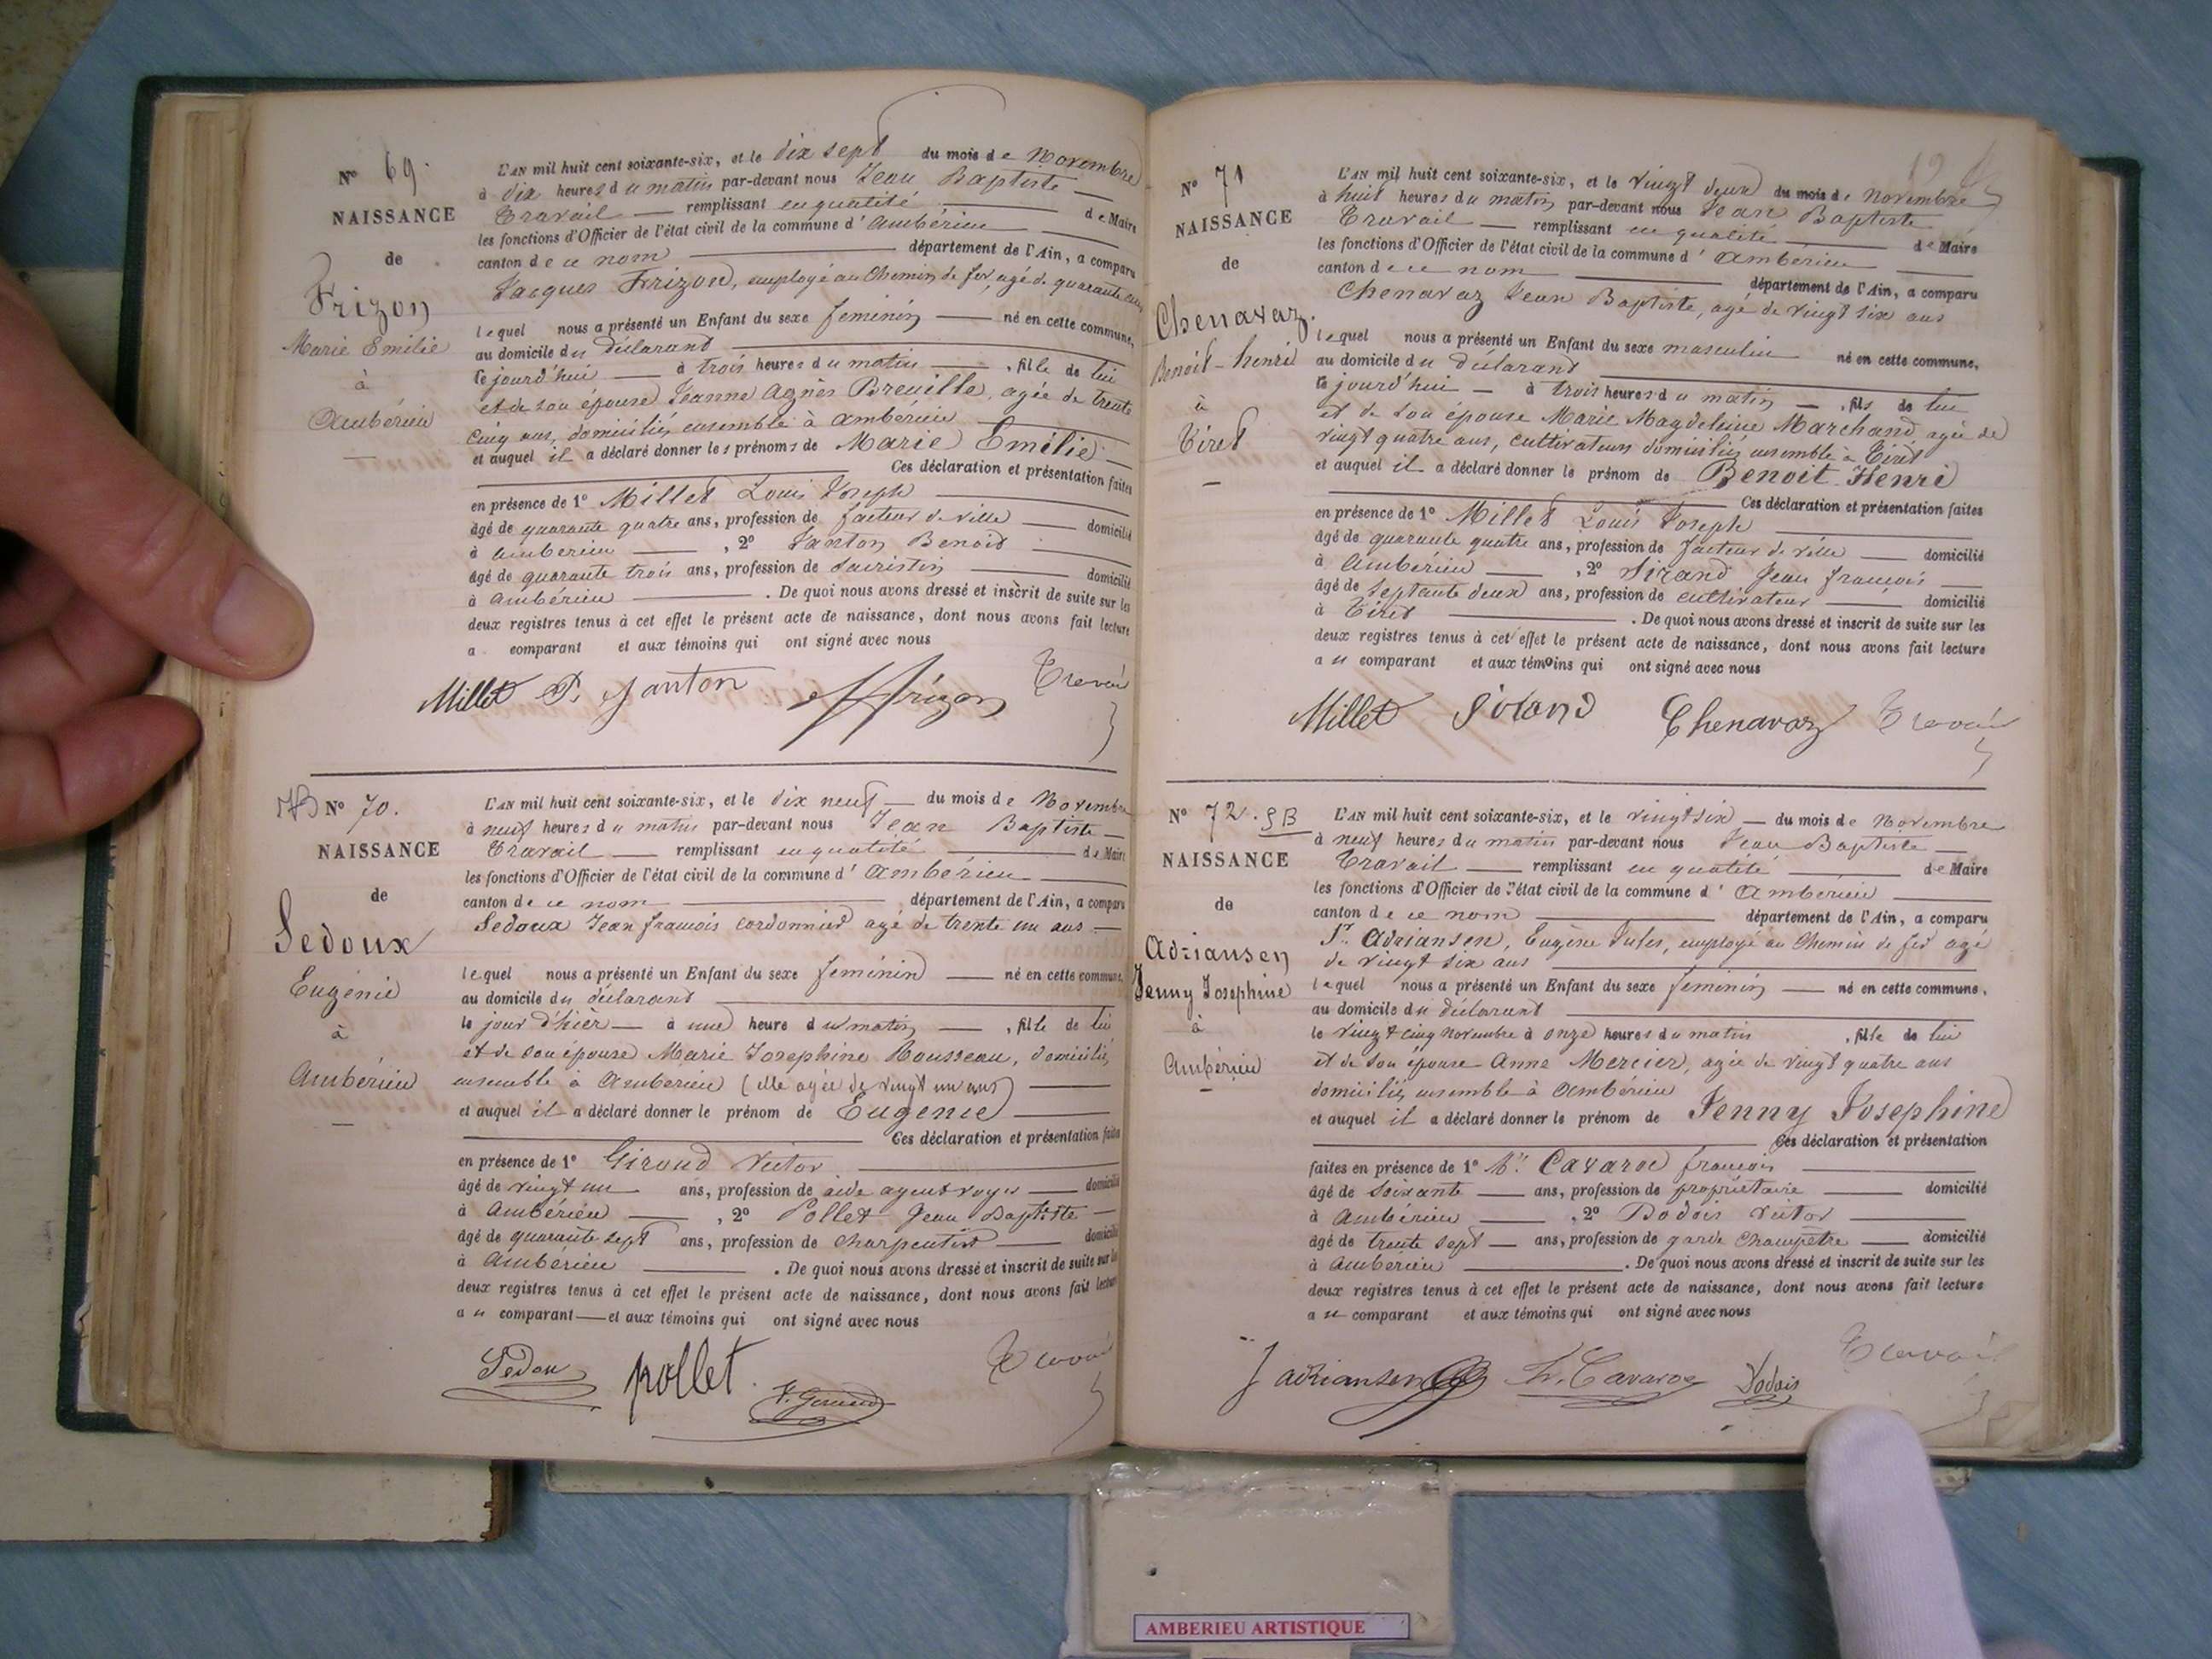 N° 69.
NAISSANCE
de
Frizon
Marie Emilie
à
Ambérieu
L'AN mil huit cent soixante-six, et le dix sept du mois de Novembre
à dix heures du matin par-devant nous Jean Baptiste
Travail remplissant en qualité de Maire
les fonctions d'Officier de l'état civil de la commune d'Ambérieu
canton de ce nom département de l'Ain, a comparu
Jacques Frizon, employé au Chemin de fer, agé de quarante ans
lequel nous a présenté un Enfant du sexe feminin né en cette commune,
au domicile du déclarant
ce jourd'hui à trois heures du matin, fille de lui
et de son épouse Jeanne Agnès Breuille, agée de trente
cinq ans, domiciliés ensemble à Ambérieu
et auquel il a déclaré donner les prénoms de Marie Emélie
Ces déclaration et présentation faites
en présence de 1° Millet Louis Joseph
âgé de quarante quatre ans, profession de facteur de ville domicilié
à Ambérieu, 2° Janton Benoit
âgé de quarante trois ans, profession de sacristin domicilié
à Ambérieu. De quoi nous avons dressé et inscrit de suite sur les
deux registres tenus à cet effet le présent acte de naissance, dont nous avons fait lecture
a comparant et aux témoins qui ont signé avec nous
Millet Janton Frizon Travail
N° 70.
NAISSANCE
de
Sedoux
Eugénie
à
Ambérieu
L'AN mil huit cent soixante-six, et le dix neuf du mois de Novembre
à neuf heures du matin par-devant nous Jean Baptiste
Travail remplissant en qualité de Maire
les fonctions d'Officier de l'état civil de la commune d'Ambérieu
canton de ce nom département de l'Ain, a comparu
Sedoux Jean françois cordonnier agé de trente un ans
lequel nous a présenté un Enfant du sexe feminin né en cette commune,
au domicile du déclarant
le jour d'hier à une heure du matin, fille de lui
et de son épouse Marie Josephine Rousseau, domiciliés
ensemble à Ambérieu (elle agée de vingt un ans)
et auquel il a déclaré donner le prénom de Eugénie
Ces déclaration et présentation faites
en présence de 1° Giroud Victor
âgé de vingt un ans, profession de aide agent voyer domicilié
à Ambérieu, 2° Pollet Jean Baptiste
âgé de quarante sept ans, profession de charpentier domicilié
à Ambérieu. De quoi nous avons dressé et inscrit de suite sur les
deux registres tenus à cet effet le présent acte de naissance, dont nous avons fait lecture
au comparant et aux témoins qui ont signé avec nous
Sedou pollet V. Giroud Travail
N° 71
NAISSANCE
de
Chenavaz.
Benoit-henri
à
Tiret
L'AN mil huit cent soixante-six, et le vingt deux du mois de novembre
à huit heures du matin par-devant nous Jean Baptiste
Travail remplissant en qualité de Maire
les fonctions d'Officier de l'état civil de la commune d'Ambérieu
canton de ce nom département de l'Ain, a comparu
Chenavaz Jean Baptiste, agé de vingt six ans
lequel nous a présenté un Enfant du sexe masculin né en cette commune,
au domicile du déclarant
ce jourd'hui à trois heures du matin, fils de lui
et de son épouse Marie Magdeleine Marchand agée de
vingt quatre ans, cultivateurs domiciliés ensemble à Tiret
et auquel il a déclaré donner le prénom de Benoit Henri
Ces déclaration et présentation faites
en présence de 1° Millet Louis Joseph
âgé de quarante quatre ans, profession de facteur de ville domicilié
à Ambérieu, 2° Sirand Jean françois
âgé de septante deux ans, profession de cultivateur domicilié
à Tiret. De quoi nous avons dressé et inscrit de suite sur les
deux registres tenus à cet effet le présent acte de naissance, dont nous avons fait lecture
au comparant et aux témoins qui ont signé avec nous
Millet Sirand Chenavaz Travail
N° 72. SB
NAISSANCE
de
Adriansen
Jenny Josephine
à
Ambérieu
L'AN mil huit cent soixante-six, et le vingt six du mois de Novembre
à neuf heures du matin par-devant nous Jean Baptiste
Travail remplissant en qualité de Maire
les fonctions d'Officier de l'état civil de la commune d'Ambérieu
canton de ce nom département de l'Ain, a comparu
Sr. Adriansen, Eugène Jules, employé au Chemin de fer agé
de vingt six ans
lequel nous a présenté un Enfant du sexe feminin né en cette commune,
au domicile du déclarant
le vingt cinq novembre à onze heures du matin, fille de lui
et de son épouse Anne Mercier, agée de vingt quatre ans
domiciliés ensemble à Ambérieu
et auquel il a déclaré donner le prénom de Jenny Josephine
Ces déclaration et présentation
faites en présence de 1° Mr. Cavaroc françois
âgé de soixante ans, profession de propriétaire domicilié
à Ambérieu, 2° Dodois Victor
âgé de trente sept ans, profession de garde champêtre domicilié
à Ambérieu. De quoi nous avons dressé et inscrit de suite sur les
deux registres tenus à cet effet le présent acte de naissance, dont nous avons fait lecture
au comparant et aux témoins qui ont signé avec nous
J adriansen Cavaroc Dodois Travail
AMBERIEU ARTISTIQUE